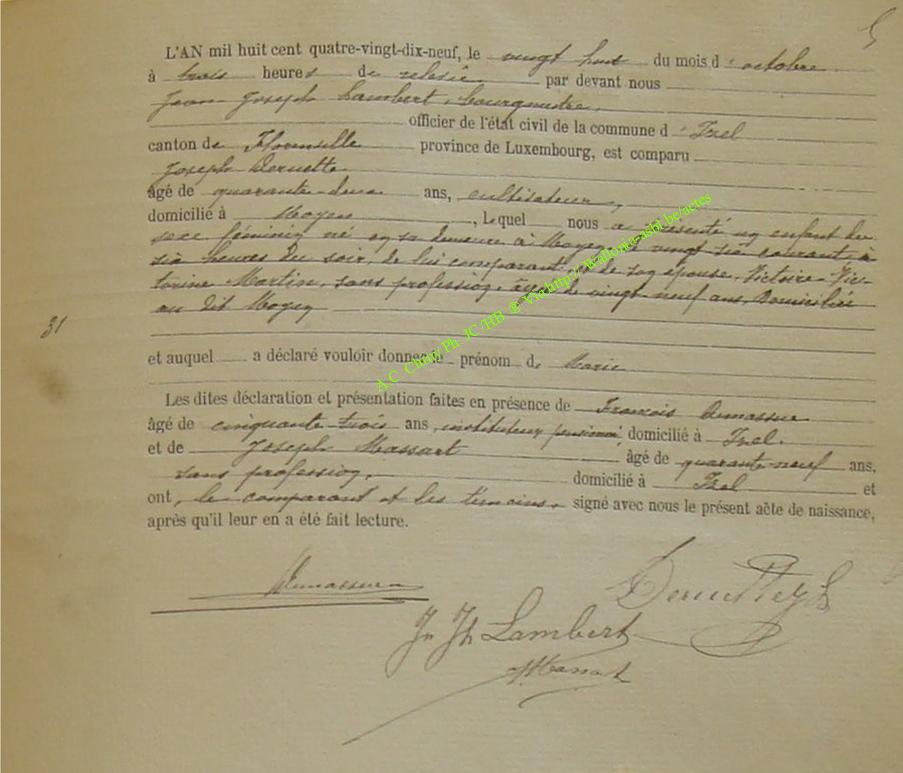 5
L'AN mil huit cent quatre-vingt-dix-neuf, le vingt huit du mois d'octobre
à trois heures de relevée par devant nous
Jean Joseph Lambert, bourgmestre,
officier de l'état civil de la commune d'Izel
canton de Florenville province de Luxembourg, est comparu
Joseph Dernette
âgé de quarante-deux ans, cultivateur,
domicilié à Moyen, Lequel nous a présenté un enfant du
sexe féminin né en sa demeure à Moyen, le vingt six courant à
six heures du soir, de lui comparant, et de son épouse, Victoire-Vic-
torine Martin, sans profession, âgée de vingt neuf ans, domiciliée
au dit Moyen
31
et auquel a déclaré vouloir donner le prénom de Marie
Les dites déclaration et présentation faites en présence de François Demasure
âgé de cinquante trois ans, instituteur pensionné, domicilié à Izel.
et de Joseph Massart âgé de quarante-neuf ans,
sans profession, domicilié à Izel et
ont, le comparant et les témoins, signé avec nous le présent acte de naissance,
après qu'il leur en a été fait lecture.
Demasure
Jn Jh Lambert
Massart
A.C. Chiny Ph JC/HB @ http://wallonie-asbl.be/actes